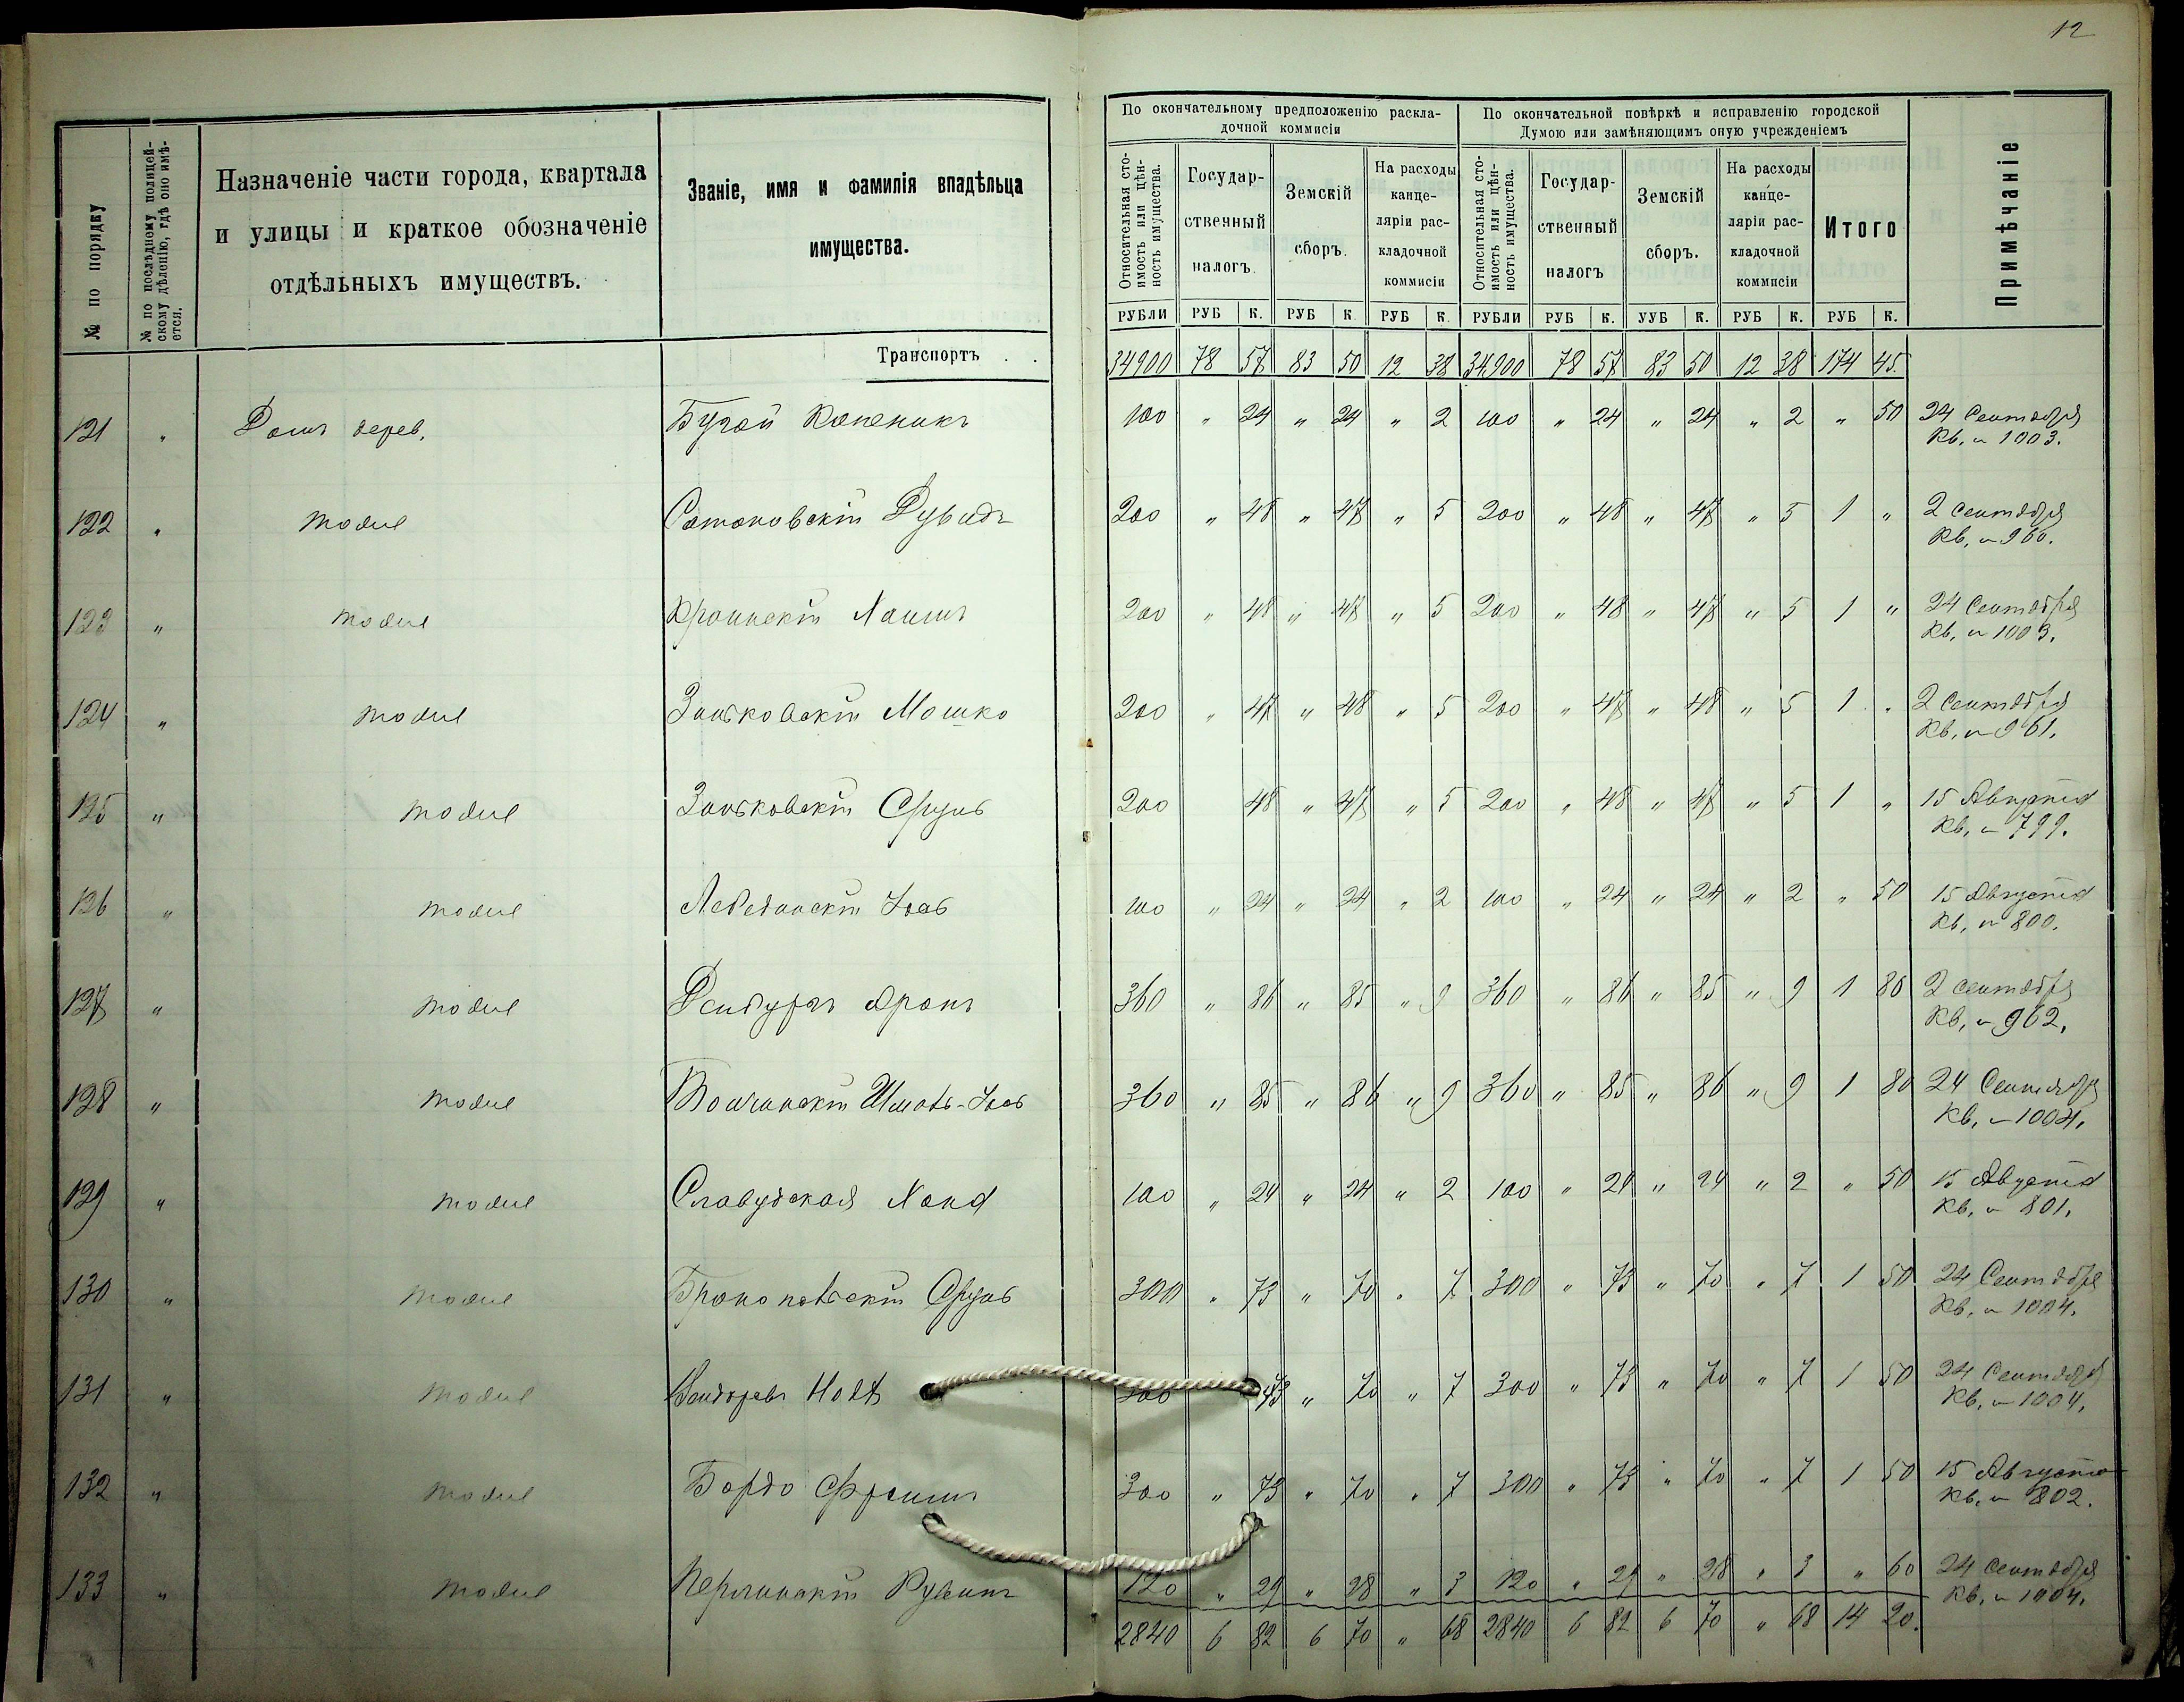 12
№ по порядку
№ по послѣдному полицей-
скому дѣленію, гдѣ оно имѣ-
ется.
Назначеніе части города, квартала
и улицы и краткое обозначеніе
отдѣльныхъ имуществъ.
Званіе, имя и фамилія впадѣльца
имущества.
По окончательному предположенію раскла-
дочной коммисіи
По окончательной повѣркѣ и исправленію городской
Думою или замѣняющимъ оную учрежденіемъ
Примѣчаніе
Относительная сто-
имость или цѣн-
ность имущества.
Государ-
ственный
налогъ.
Земскій
сборъ.
На расходы
канце-
ляріи рас-
кладочной
коммисіи
Относительная сто-
имость или цѣн-
ность имущества.
Государ-
ственный
налогъ
Земскій
сборъ.
На расходы
канце-
ляріи рас-
кладочной
коммисіи
Итого
РУБЛИ РУБ К. РУБ К. РУБ К. РУБЛИ РУБ К. УУБ К. РУБ К. РУБ К.
Транспортъ . . 34900 78 57 83 50 12 38 34900 78 57 83 50 12 38 174 45.
121 " Домъ дерев. 100 " 24 " 24 " 2 100 " 24 " 24 " 2 " 50 24 Сентября
Кв. № 1003.
122 " тоже Сатановскій Дувидъ 200 " 48 " 47 " 5 200 " 48 " 47 " 5 1 " 2 сентября
Кв. № 960.
123 " тоже Хаимъ 200 " 48 " 47 " 5 200 " 48 " 47 " 5 1 " 24 Сентября
Кв. № 1003.
124 " тоже Зиньковскій Мошко 200 " 47 " 48 " 5 200 " 47 " 48 " 5 1 " 2 Сентября
Кв. № 961.
125 " тоже Зиньковскій Сруль 200 48 " 47 " 5 200 " 48 " 47 " 5 1 " 15 Августа
Кв. № 799.
126 " тоже Лебединскій Іосъ 100 " 24 " 24 " 2 100 " 24 " 24 " 2 " 50 15 Августа
Кв. № 800.
127 " тоже Аронъ 360 " 86 " 85 " 9 360 " 86 " 85 " 9 1 80 2 сентября
Кв. № 962.
128 " тоже 360 " 85 " 86 " 9 360 " 85 " 86 " 9 1 80 24 Сентября
Кв. № 1004.
129 " тоже Славутская Хана 100 " 24 " 24 " 2 100 " 24 " 24 " 2 " 50 15 Августа
Кв. № 801.
130 " тоже Сруль 300 " 73 " 70 " 7 300 " 73 " 70 " 7 1 50 24 Сентября
Кв. № 1004.
131 " тоже 300 73 " 70 " 7 300 " 73 " 70 " 7 1 50 24 Сентября
Кв. № 1004.
132 " тоже Бордо Фроимъ 300 " 73 " 70 " 7 300 " 73 " 70 " 7 1 50 15 Августа
Кв. № 802.
133 " тоже Рувинъ 120 " 29 " 28 " 3 120 " 29 " 28 " 3 " 60 24 сентября
Кв. № 1004.
2840 6 82 6 70 " 68 2840 6 82 6 70 " 68 14 20.